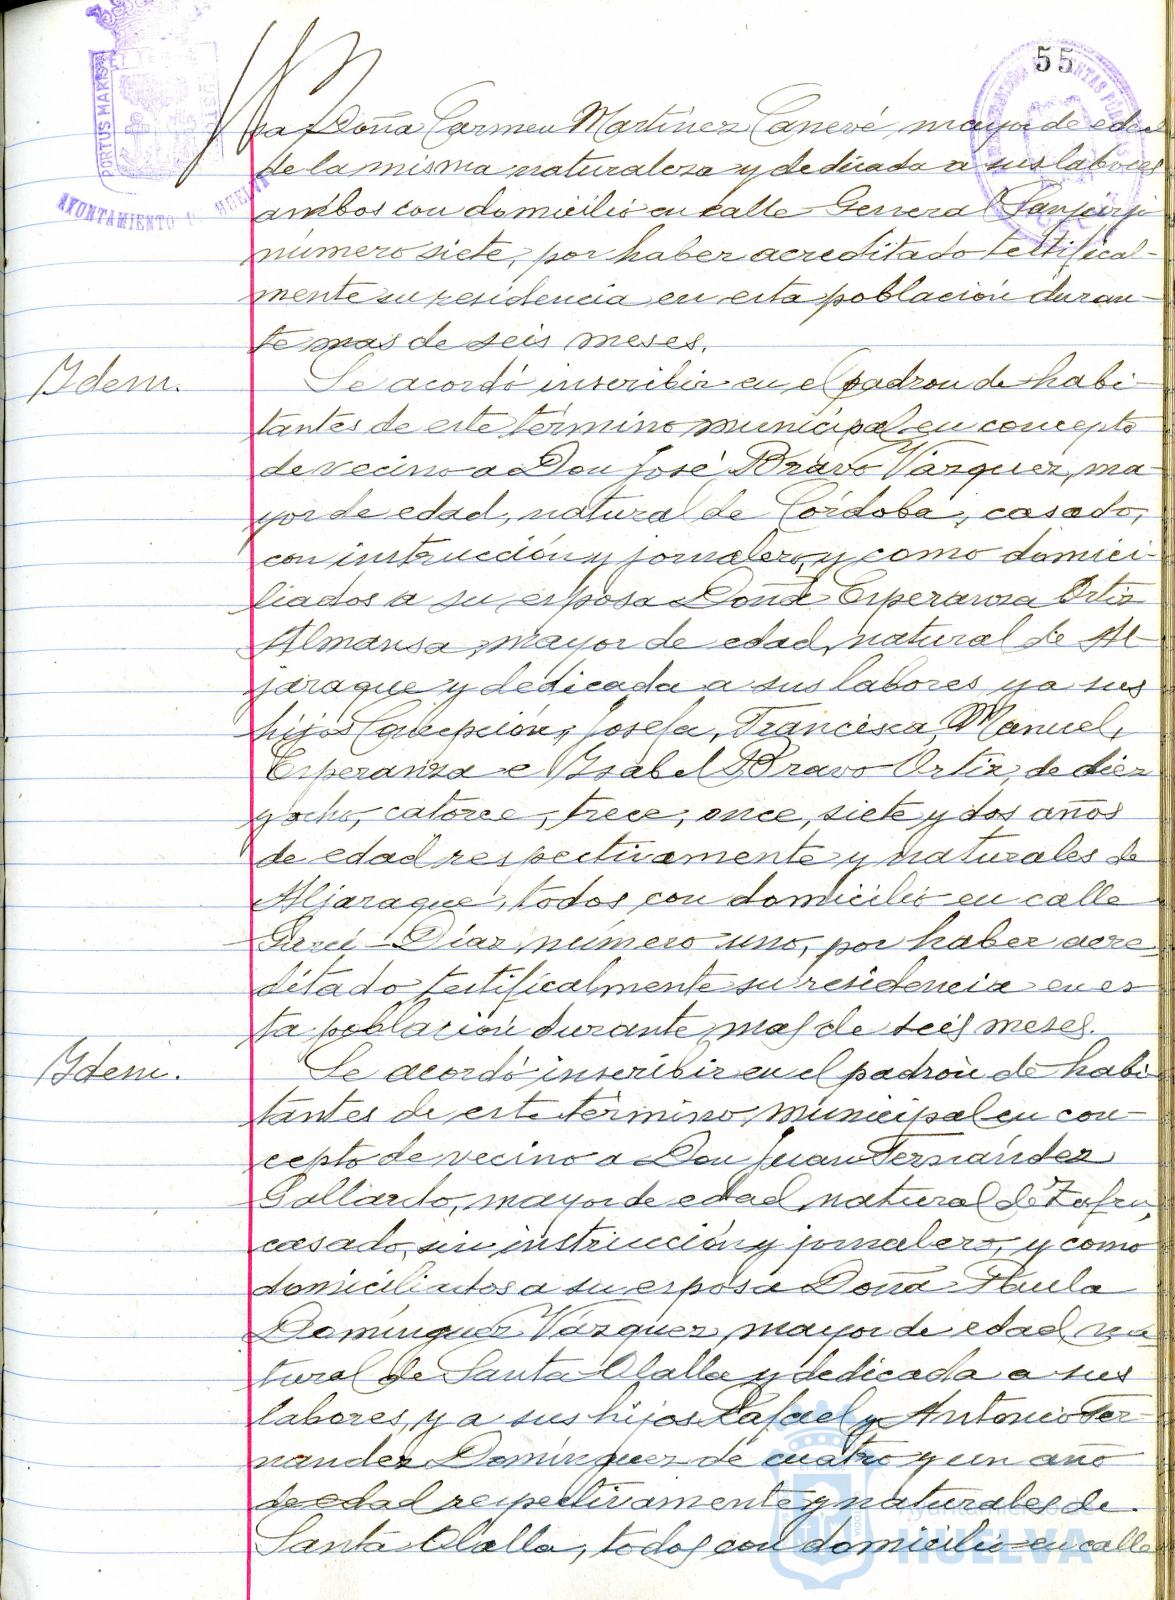 55
PORTUS MARIS
AYUNTAMIENTO HUELVA
sa Doña Carmen Martínez Canevé, mayor de edad
de la misma naturaleza y dedicada a sus labores
ambos con domicilio en calle General Sanjurjo
número siete, por haber acreditado testifical-
mente su residencia en esta población duran-
te mas de seis meses.
Ydem.
Se acordó inscribir en el padron de habi-
tantes de este término municipal en concepto
de vecino a Don José Bravo Vázquez, ma-
yor de edad, natural de Córdoba, casado,
con instrucción y jornalero, y como domici-
liados a su esposa Doña Esperanza Ortiz
Almansa, mayor de edad, natural de Al-
jaraque y dedicada a sus labores, y a sus
hijos Concepción, Josefa, Francisca, Manuel,
Esperanza e Ysabel Bravo Ortiz, de diez
y ocho, catorce, trece, once, siete y dos años
de edad respectivamente y naturales de
Aljaraque, todos con domicilio en calle
Díaz número uno, por haber acre-
ditado testificalmente su residencia en es
ta población durante mas de seis meses.
Ydem.
Se acordó inscribir en el padrón de habi
tantes de este término municipal en con-
cepto de vecino a Don Juan Fernández
Gallardo, mayor de edad, natural de Zafra,
casado, sin instrucción y jornalero, y como
domiciliados a su esposa Doña Paula
Domínguez Vázquez, mayor de edad, na-
tural de Santa Olalla y dedicada a sus
labores, y a sus hijos Rafael y Antonio Fer-
nandez Domínguez de cuatro y un año
de edad respectivamente y naturales de
Santa Olalla, todos con domicilio en calle
Ayuntamiento de
HUELVA